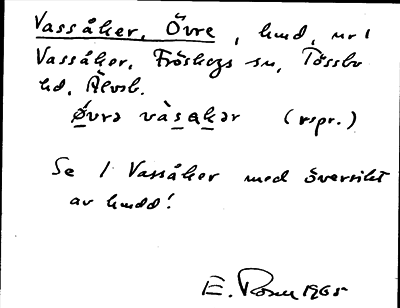 Vassåker, Övre, hmd, nr 1
Vassåker, Fröskogs sn, Tössbo
hd, Älvsb.
Øvrə vàsakər (rspr.)
Se 1 Vassåker med översikt
av hmdd!
E. Rosén 1965